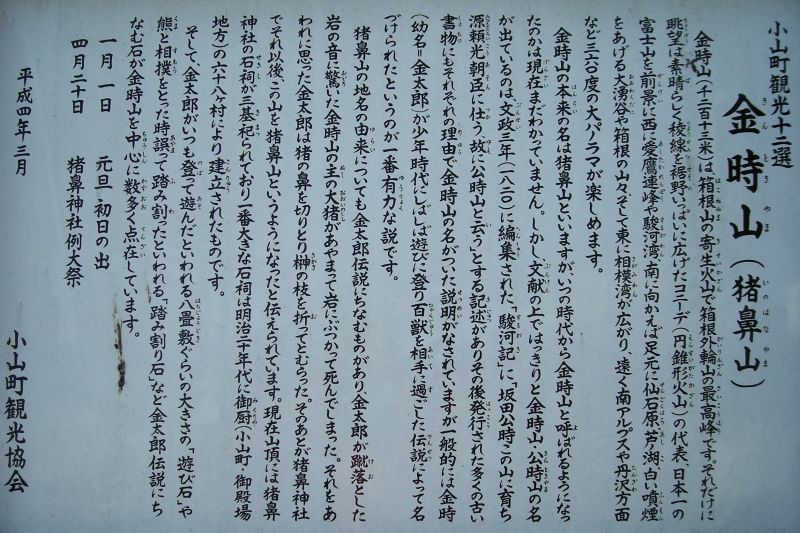 小山町観光十二選
金時山（猪鼻山）
金時山（千二百十三米）は箱根山の寄生火山で箱根外輪山の最高峰です。それだけに
眺望は素晴らしく稜線を裾野いっぱいに広げたコニーデ（円錐形火山）の代表、日本一の
富士山を前景に西に愛鷹連峰や駿河湾、南に向かえば足元に仙石原、芦ノ湖、白い噴煙
をあげる大湧谷や箱根の山々そして東に相模湾が広がり、遠く南アルプスや丹沢方面
など三六〇度の大パノラマが楽しめます。
金時山の本来の名は猪鼻山といいますがいつの時代から金時山と呼ばれるようになっ
たのかは現在まだわかっていません。しかし文献の上ではっきりと金時山・公時山の名
が出ているのは文政三年（一八二〇）に編集された、「駿河記」に「坂田公時この山に育ち
源頼光朝臣に仕う故に公時山と云う」とする記述がありその後発行された多くの古い
書物にもそれぞれの理由で金時山の名がついた説明がなされていますが一般的には金時
（幼名＝金太郎）が少年時代にしばしば遊びに登り百獣を相手に過ごした伝説によって名
づけられたというのが一番有力な説です。
猪鼻山の地名の由来についても金太郎伝説にちなむものがあり金太郎が蹴落とした
岩の音に驚いた金時山の主の大猪があやまて岩にぶつかって死んでしまった。それをあ
われに思った金太郎は猪の鼻を切りとり榊の枝を折ってとむらった。そのあとが猪鼻神社
でそれ以後、この山を猪鼻山というようになったと伝えられています。現在山頂には猪鼻
神社の石祠が三基祀られており一番大きな石祠は明治二十年代に御厨（小山町・御殿場
地方）の六十八ヶ村により建立されたものです。
そして、金太郎がいつも登って遊んだといわれる八畳敷ぐらいの大きさの「遊び石」や
熊と相撲をとった時誤って踏み割ったといわれる、「踏み割り石」など金太郎伝説にち
なむ石が金時山を中心に数多く点在しています。
一月一日　元旦初日の出
四月二十日　猪鼻神社例大祭
平成四年三月
小山町観光協会